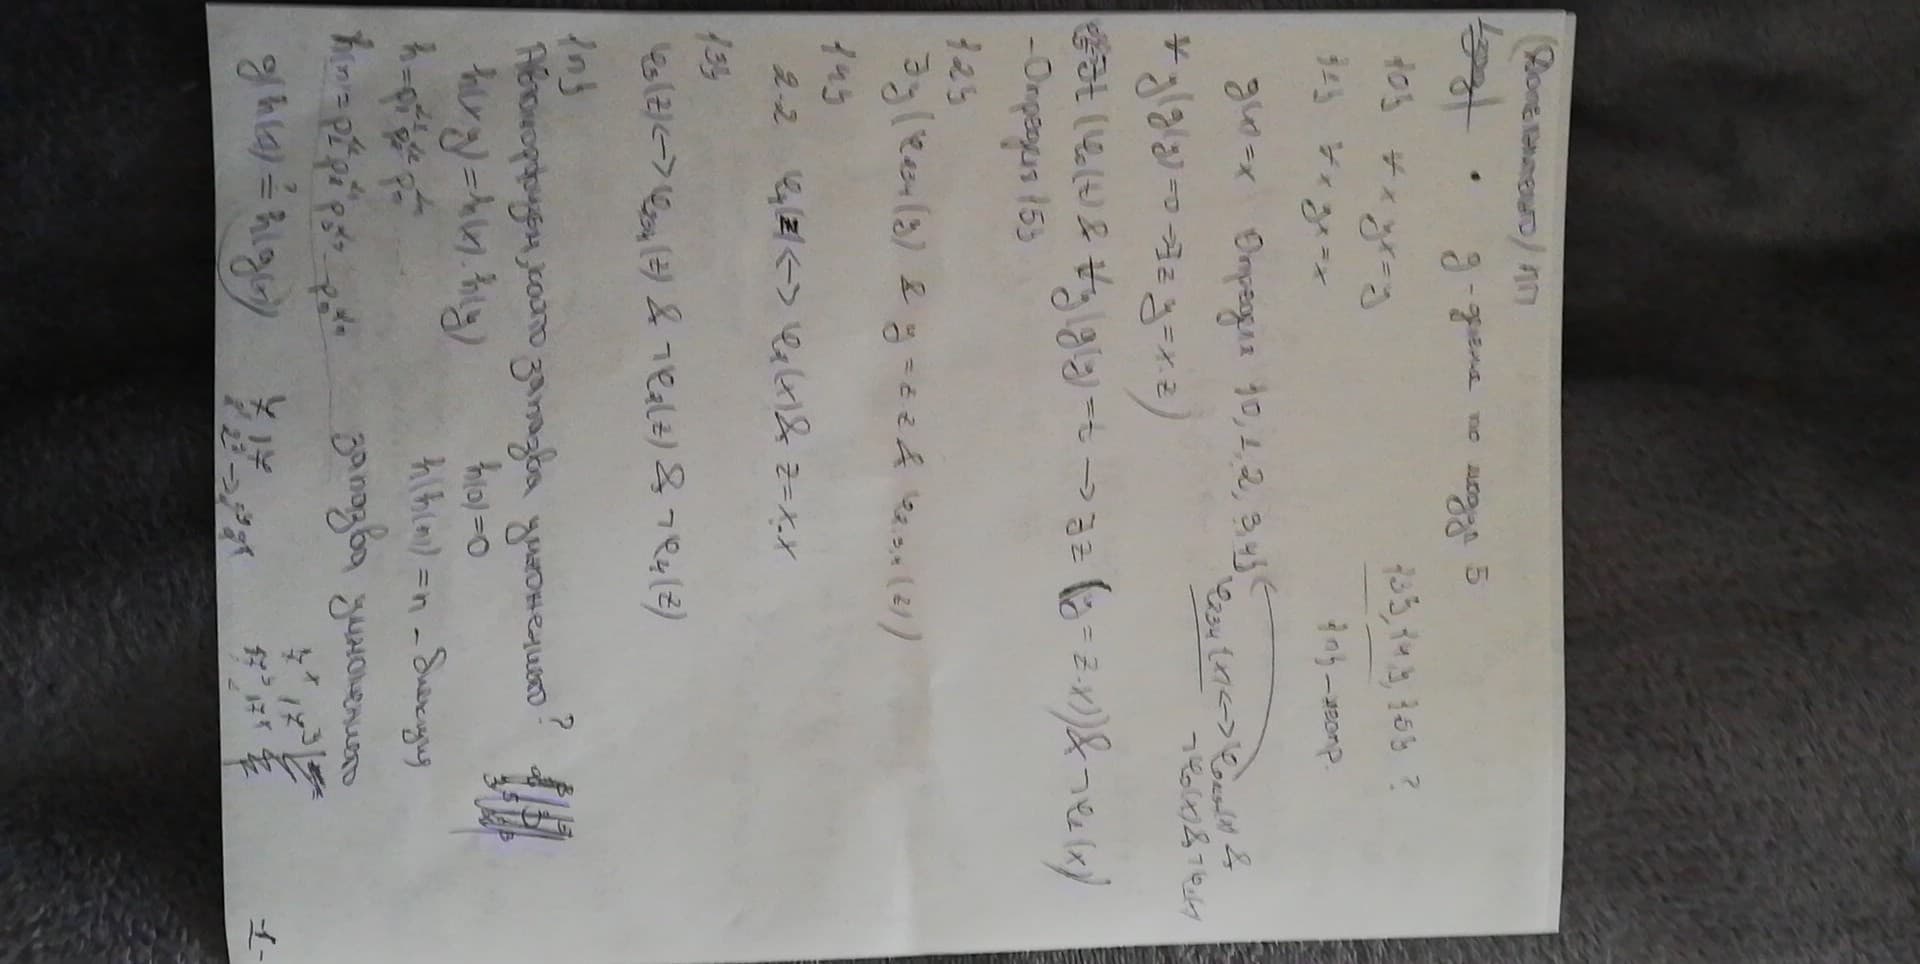 (Допълнително) ЛП
1 зад) • g - деление по модул 5
{0} ∀x yx=y {3}, {4}, {5} ?
{1} ∀x yx=x {n} - неопр.
g(x)=x Определя {0, 1, 2, 3, 4}
φ234(x) <-> φ01234(x) &
¬φ0(x) & ¬φ1(x)
∀y(g(y)=0 -> ∃z y=x.z)
∃t (φ0(t) & ∀y(g(y)=t -> ∃z (y=z.x)) & ¬φ1(x)
- Определя {5}
{2}
∃y(φ234(y) & y=z.z & φ2,3,4(z))
{4}
2.2 φ4(z) <-> φ2(x) & z=x.x
{3}
φ3(z) <-> φ234(z) & ¬φ2(z) & ¬φ4(z)
{n}
Автоморфизъм, който запазва умножението?
h(xy)=h(x).h(y) h(0)=0
h(h(n))=n - биекция
запазва умножението
g(h(x)) ?= h(g(x)) 7 17
7^x 17^y
-1-